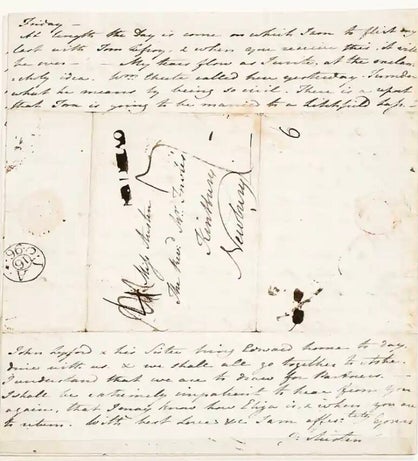 Friday —
At length the Day is come on which I am to flirt my
last with Tom Lefroy, & when you receive this it will
be over — My tears flow as I write, at the melan:
:choly idea. Wm. Chute called here yesterday. I wonder
what he means by being so civil. There is a report
that Tom is going to be married to a Litchfield Lass.
Miss Austen
The Revd. Mr. Fowle's
Kintbury
Newbury
6
JA
16
96
John Lyford & his Sister bring Edward home to day,
dine with us, & we shall all go together to Ashe.
I understand that we are to draw for Partners. —
I shall be extremely impatient to hear from you
again, that I may know how Eliza is, & when you are
to return. With best Love &c. I am affec:tely Yours
J. Austen